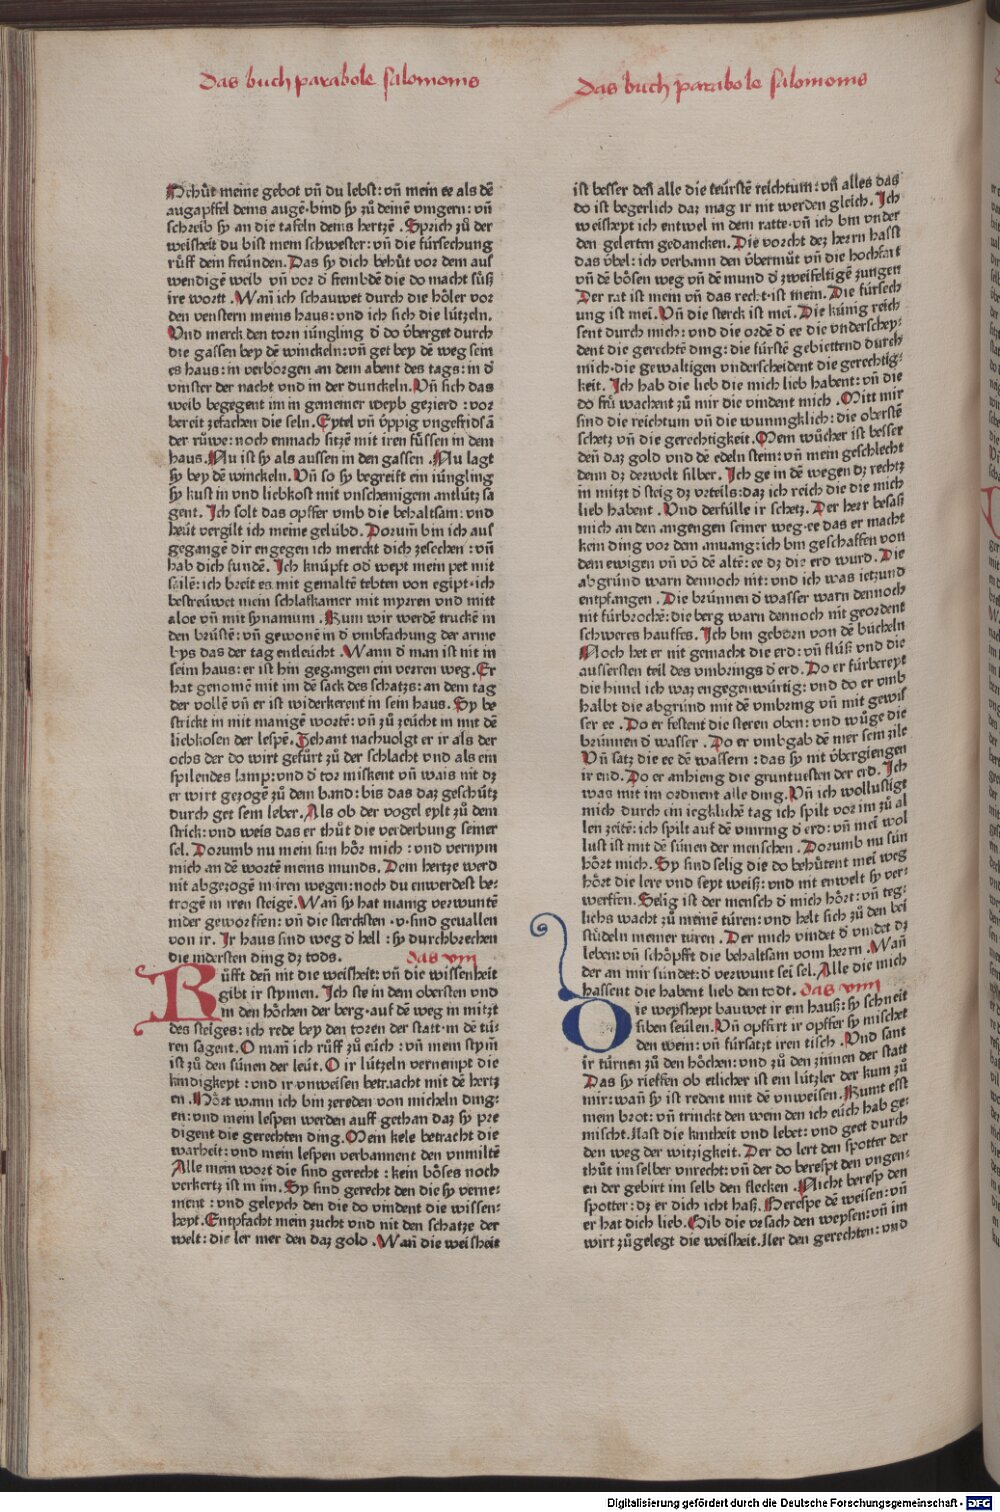 Das buch parabole salomonis
Behůt meine gebot vn̄ du lebst: vn̄ mein ee als dē
augapffel deins augē. bind sy zů deinē vingern: vn̄
schreib sy an die tafeln deins hertzē. Sprich zů der
weisheit du bist mein schwester: vn̄ die fürsehung
růff dem freünden. Das sy dich behüt vor dem auſ
wendigē weib vn̄ vor d̕ frembdē die do macht süß
ire wortt. Wan̄ ich schauwet durch die höler vor
den venstern meins haus: vnd ich sich die lützeln.
Vnd merck den torn iüngling d̕ do überget durch
die gassen bey dē winckeln: vn̄ get bey dē weg sein
es haus: in verborgen an dem abent des tags: in d̕
vinster der nacht vnd in der dunckeln. Vn̄ sich das
weib begegent im in gemeiner weyb gezierd: vor
bereit zefachen die seln. Eytel vn̄ üppig vngefridsā
der růwe: noch enmach sitzē mit iren füssen in dem
haus. Nu ist sy als aussen in den gassen. Nu lagt
sy bey dē winckeln. Vn̄ so sy begreift ein iüngling
sy kust in vnd liebkost mit vnschemigem antlütz sa
gent. Ich solt das opffer vmb die behaltsam: vnd
heüt vergilt ich meine gelübd. Dorum̄ bin ich aus
gegangē dir engegen ich merckt dich zesechen: vn̄
hab dich fundē. Ich knüpft od̕ wept mein pet mit
sailē: ich breit es mit gemaltē tebten von egipt. ich
bestreüwet mein schlafkamer mit myrren vnd mitt
aloe vn̄ mit synamum. Kum wir werdē truckē in
den brüstē: vn̄ gewonē in d̕ vmbfachung der arme
bys das der tag entleücht. Wann d̕ man ist nit in
seim haus: er ist hin gegangen ein verren weg. Er
hat genomē mit im dē sack des schatzs: an dem tag
der vollē vn̄ er ist widerkerent in sein haus. Sy be
strickt in mit manigē wortē: vn̄ zů zeücht in mit dē
liebkosen der lespē. Zehant nachuolgt er ir als der
ochs der do wirt gefürt zů der schlacht vnd als ein
spilendes lamp: vnd d̕ tor miskent vn̄ wais nit dz
er wirt gezogē zů dem band: bis das daz geschütz
durch get sein leber. Als ob der vogel eylt zů dem
strick: vnd weis das er thůt die verderbung seiner
sel. Dorumb nu mein sun hör mich: vnd vernym
mich an dē wortē meins munds. Dem hertze werd
nit abgezogē in iren wegen: noch du enwerdest be-
trogē in iren steigē. Wan̄ sy hat manig verwuntē
nider geworffen: vn̄ die stercksten. v. sind geuallen
von ir. Ir haus sind weg d̕ hell: sy durchbrechen
die indersten ding dz tods. das viii
Růfft den̄ nit die weisheit: vn̄ die wissenheit
gibt ir stymen. Ich ste in dem obersten vnd
in den höchen der berg. auf dē weg in mitzt
des steiges: ich rede bey den toren der statt. in dē tü-
ren sagent. O man̄ ich růff zů eüch: vn̄ mein stym̄
ist zů den sünen der leüt. O ir lützeln vernempt die
kindigkeyt: vnd ir vnweisen betracht mit dē hertz
en. Hört wann ich bin zereden von micheln ding-
en: vnd mein lespen werden auff gethan daz sy pre
digent die gerechten ding. Mein kele betracht die
warheit: vnd mein lespen verbannent den vnmiltē
Alle mein wort die sind gerecht: kein böses noch
verkertz ist in im. Sy sind gerecht den die sy verne-
ment: vnd geleych den die do vindent die wissen-
heyt. Entpfacht mein zucht vnd nit den schatze der
welt: die ler mer den daz gold. Wan̄ die weisheit
Das buch parabole salomonis
ist besser den̄ alle die teürstē reichtum: vn̄ alles das
do ist begerlich daz mag ir nit werden gleich. Ich
weisheyt ich entwel in dem ratte. vn̄ ich bin vnder
den gelerten gedancken. Die vorcht dez herrn hasst
das übel: ich verbann den übermůt vn̄ die hochfart
vn̄ dē bösen weg vn̄ dē mund d̕ zweifeltigē zungen
Der rat ist mein vn̄ das recht. ist mein. Die fürsech
ung ist mei. Vn̄ die sterck ist mei. Die künig reich
sent durch mich: vnd die ordē d̕ ee die vnderschey-
dent die gerechtē ding: die fürstē gebiettend durch
mich. die gewaltigen vnderscheident die gerechtig-
keit. Ich hab die lieb die mich lieb habent: vn̄ die
do frů wachent zů mir die vindent mich. Mitt mir
sind die reichtum vn̄ die wunnigklich: die oberstē
schetz vn̄ die gerechtigkeit. Mein wůcher ist besser
den̄ daz gold vnd dē edeln stein: vn̄ mein geschlecht
denn dz derwelt silber. Ich ge in dē wegen dz rechtz
in mitzt d̕ steig dz vrteils: daz ich reich die die mich
lieb habent. Vnd derfülle ir schetz. Der herr besaß
mich an den angengen seiner weg. ee das er macht
kein ding vor dem anuang: ich bin geschaffen von
dem ewigen vn̄ vō dē altē: ee dz die erd wurd. Die
abgründ warn dennoch nit: vnd ich was ietzund
entpfangen. Die brünnen d̕ wasser warn dennoch
nit fürbrochē: die berg warn dennoch nit geordent
schweres hauffes. Ich bin geborn von dē bücheln
Noch het er nit gemacht die erd: vn̄ flüß vnd die
aussersten teil des vmbrings d̕ erd. Do er fürbereyt
die himel ich waz engegenwürtig: vnd do er vmb
halbt die abgründ mit dē vmbring vn̄ mit gewiſ
ser ee. Do er festent die steren oben: vnd wůge die
brünnen d̕ wasser. Do er vmbgab dē mer sein zile
Vn̄ satz die ee dē wassern: das sy nit übergiengen
ir end. Do er anhieng die gruntuesten der erd. Ich
was mit im ordnent alle ding. Vn̄ ich wollustigt
mich durch ein iegklichē tag ich spilt vor im zů al
len zeitē: ich spilt auf dē vmring d̕ erd: vn̄ mei wol
lust ist mit dē sünen der menschen. Dorumb nu sün
hört mich. Sy sind selig die do behütent mei weg
hört die lere vnd seyt weiß: vnd nit enwelt sy ver-
werffen. Selig ist der mensch d̕ mich hört: vn̄ teg-
lichs wacht zů meinē türen: vnd helt sich zů den bei
stüdeln meiner türen. Der mich vindet d̕ vindet dz
leben: vn̄ schöpfft die behaltsam vom herrn. Wan̄
der an mir sündet: d̕ verwunt sei sel. Alle die mich
hassent die habent lieb den todt. das viiii
Die weysheyt bauwet ir ein hauß: sy schneit
siben seülen. Vn̄ opffirt ir opffer sy mischet
den wein: vn̄ fürsatzt iren tisch. Vnd sant
ir türnen zů den höchen: vnd zů den zinnen der statt
Das sy rieffen ob etlicher ist ein lützler der kum zů
mir: wan̄ sy ist redent mit dē vnweisen. Kumt esst
mein brot: vn̄ trinckt den wein den ich eüch hab ge-
mischt. Last die kintheit vnd lebet: vnd geet durch
den weg der witzigkeit. Der do lert den spotter der
thůt im selber vnrecht: vn̄ der do berespt den vngen-
en der gebirt im selb den flecken. Nicht beresp den
spotter: dz er dich icht haß. Berespe dē weisen: vn̄
er hat dich lieb. Gib die vrsach den weysen: vn̄ im
wirt zůgelegt die weisheit. Ler den gerechten: vnd
Digitalisierung gefördert durch die Deutsche Forschungsgemeinschaft - DFG